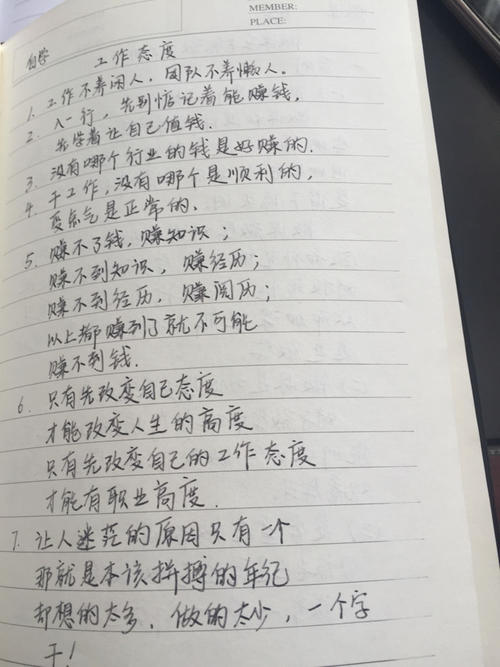 MEMBER:
PLACE:
自学 工作态度
1. 工作不养闲人，团队不养懒人。
2. 入一行，先别惦记着能赚钱，
先学着让自己值钱.
3. 没有哪个行业的钱是好赚的.
4. 干工作，没有哪个是顺利的，
受点气是正常的.
5. 赚不了钱，赚知识；
赚不到知识，赚经历；
赚不到经历，赚阅历；
以上都赚到了就不可能
赚不到钱.
6. 只有先改变自己态度
才能改变人生的高度
只有先改变自己的工作态度
才能有职业高度.
7. 让人迷茫的原因只有一个
那就是本该拼搏的年纪
却想的太多，做的太少，一个字
干！